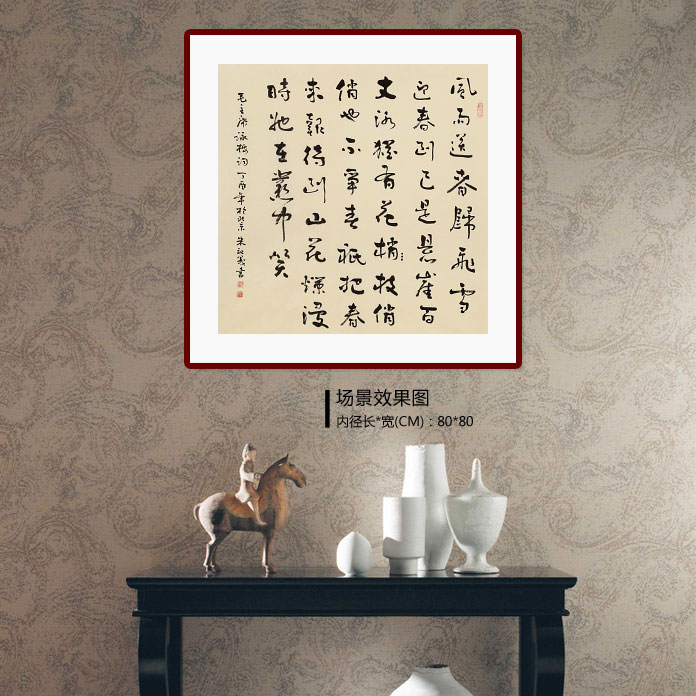 風雨送春歸飛雪
迎春到已是悬崖百
丈冰猶有花梢枝俏
俏也不爭春祇把春
來報待到山花爛漫
時她在叢中笑
毛主席詠梅詞 丁酉年於北京 朱書
场景效果图
内径长*宽(CM)：80*80